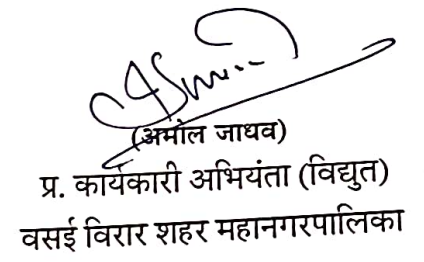 (अमोल जाधव)
प्र. कार्यकारी अभियंता (विद्युत)
वसई विरार शहर महानगरपालिका